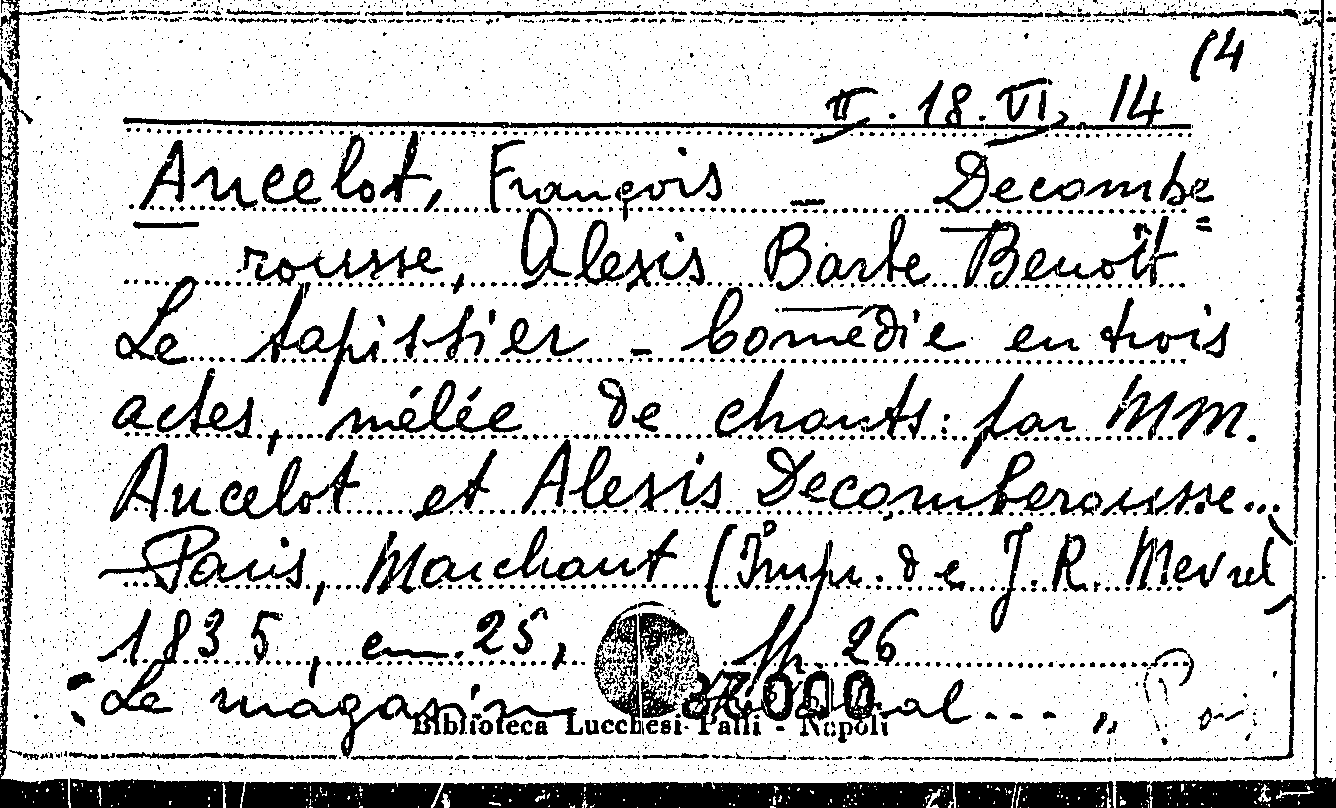 (4
II. 18. VI. 14
Ancelot, François - Decombe
rousse, Alexis Barbe Benoît =
Le tapissier - Comédie en trois
actes, mêlée de chants: par MM.
Ancelot et Alexis Decomberousse...
- Paris, Marchant (Impr. de J. R. Mevrel)
1835, cm. 25, pp. 26
: Le magasin 37000 ... "
Biblioteca Lucchesi-Palli - Napoli